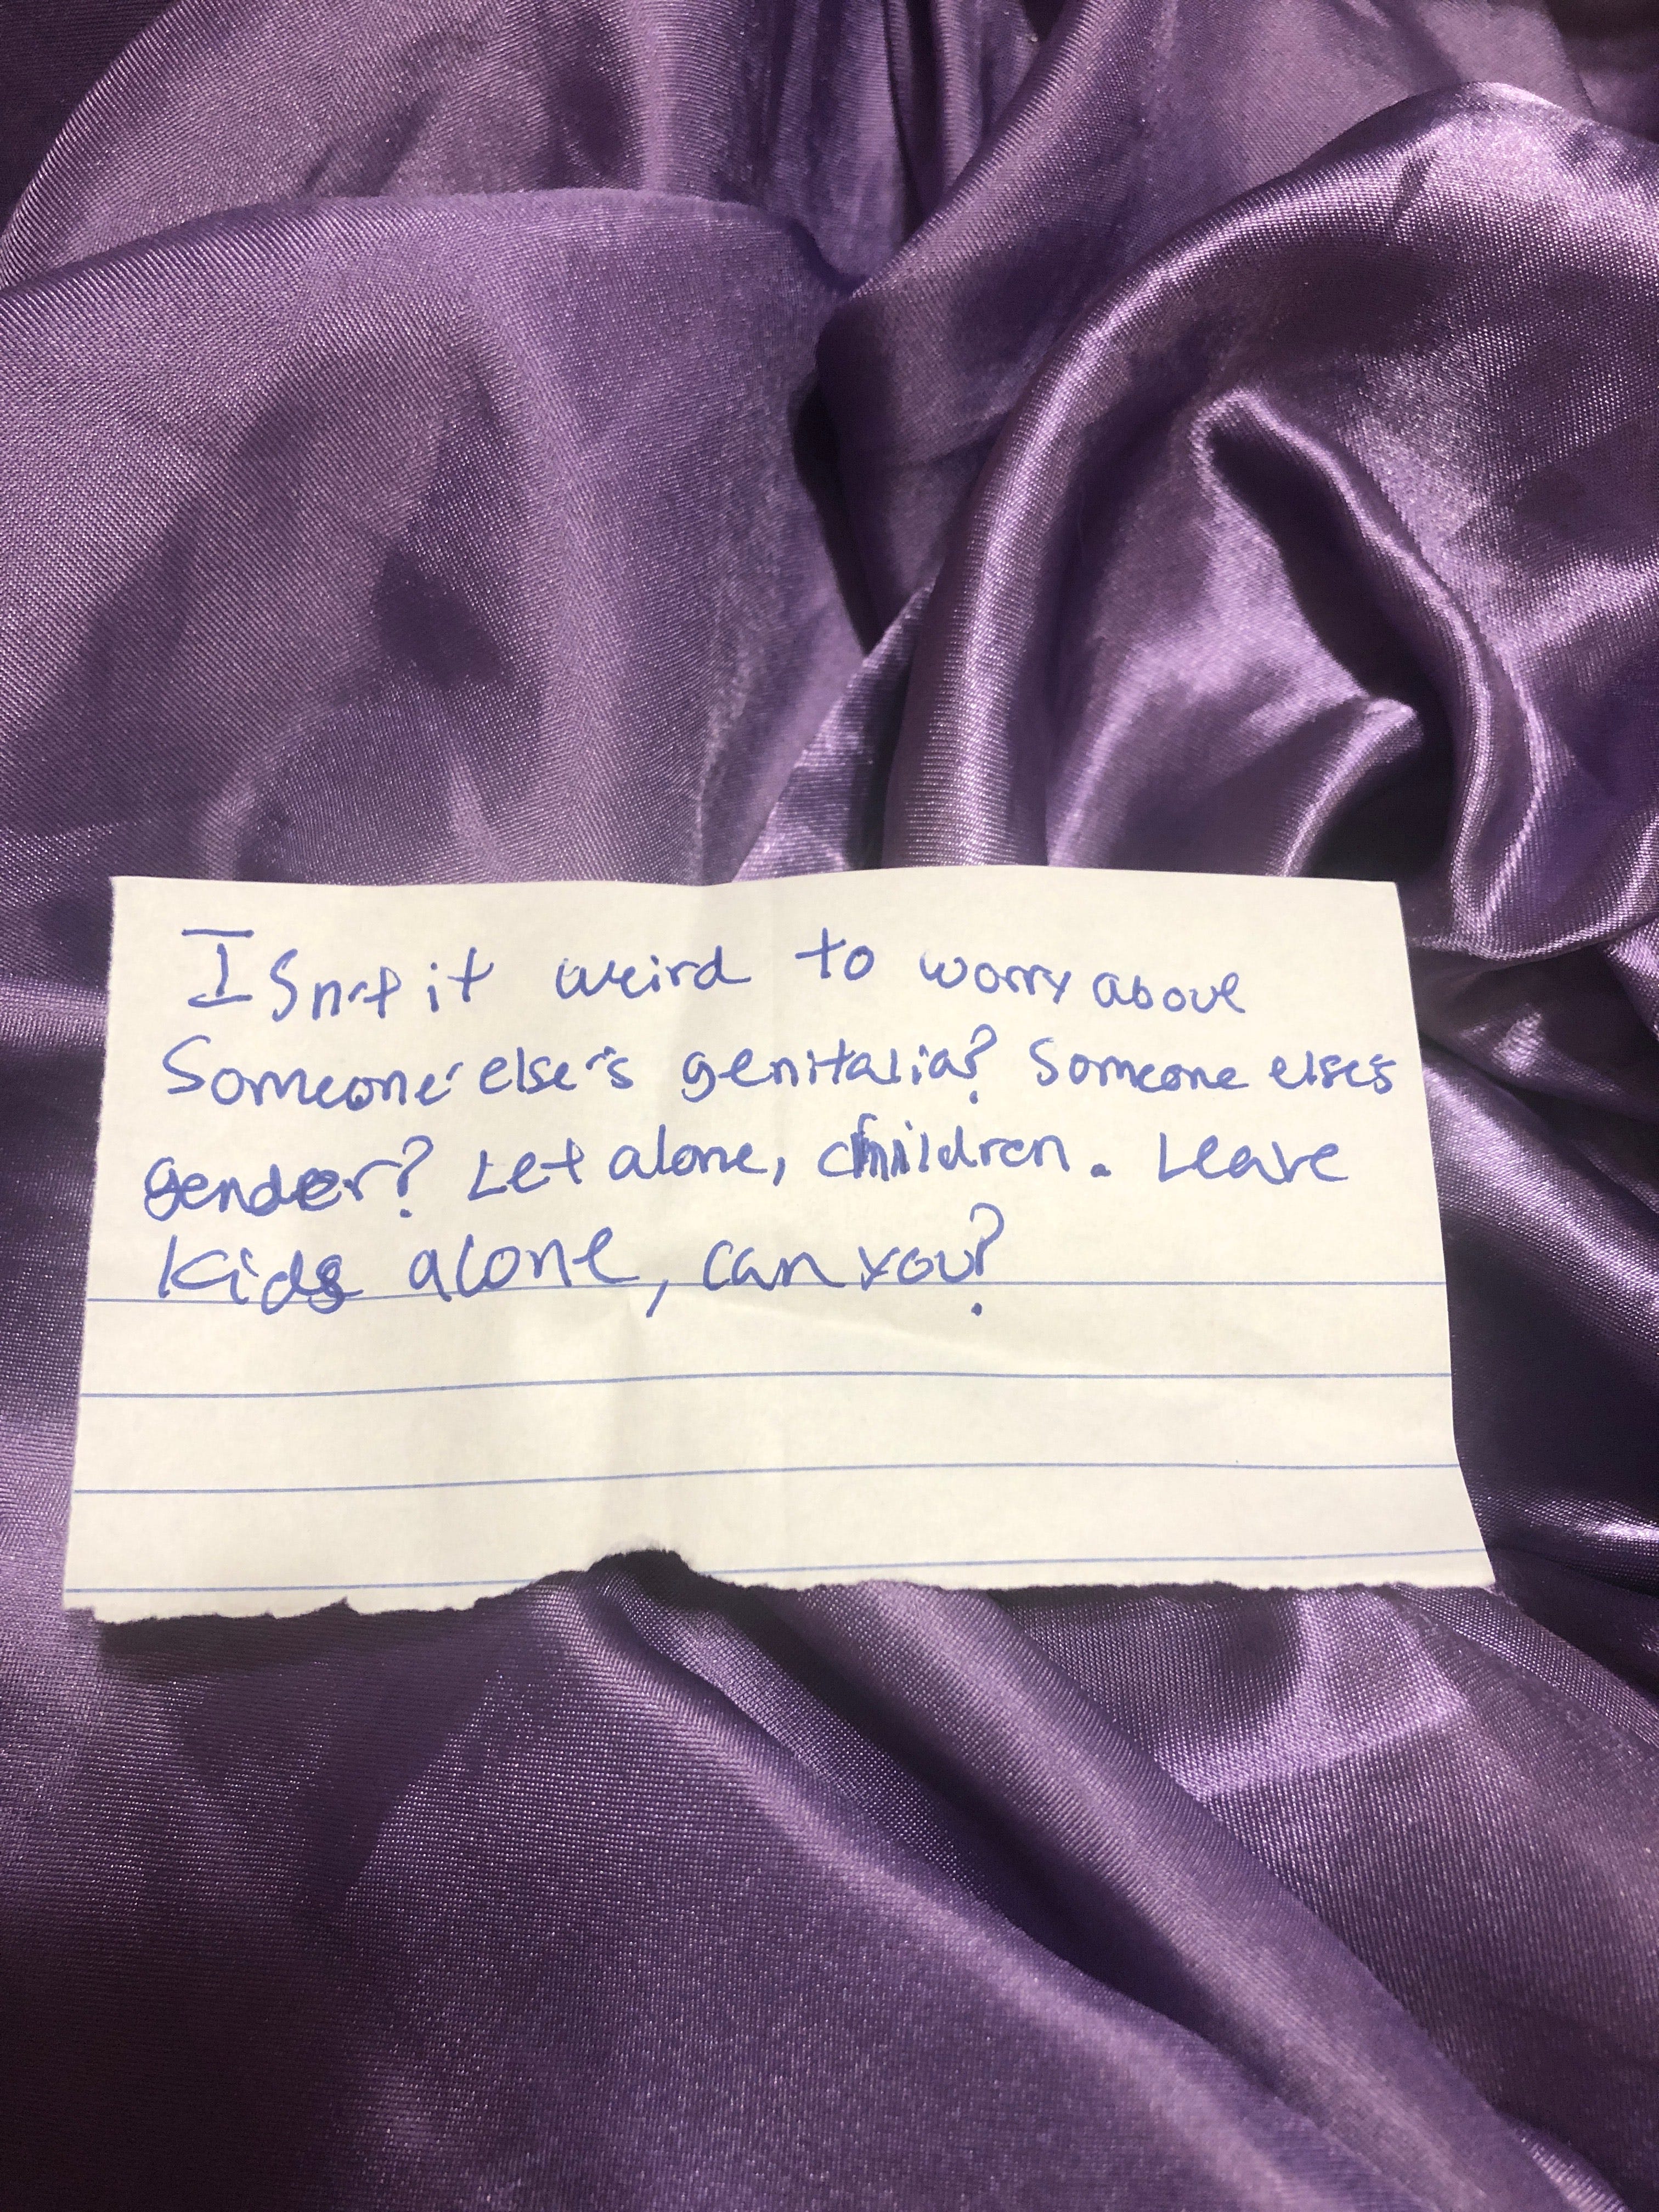 Isn't it weird to worry about
Someone else's genitalia? Someone elses
gender? Let alone, children. Leave
kids alone, can you?